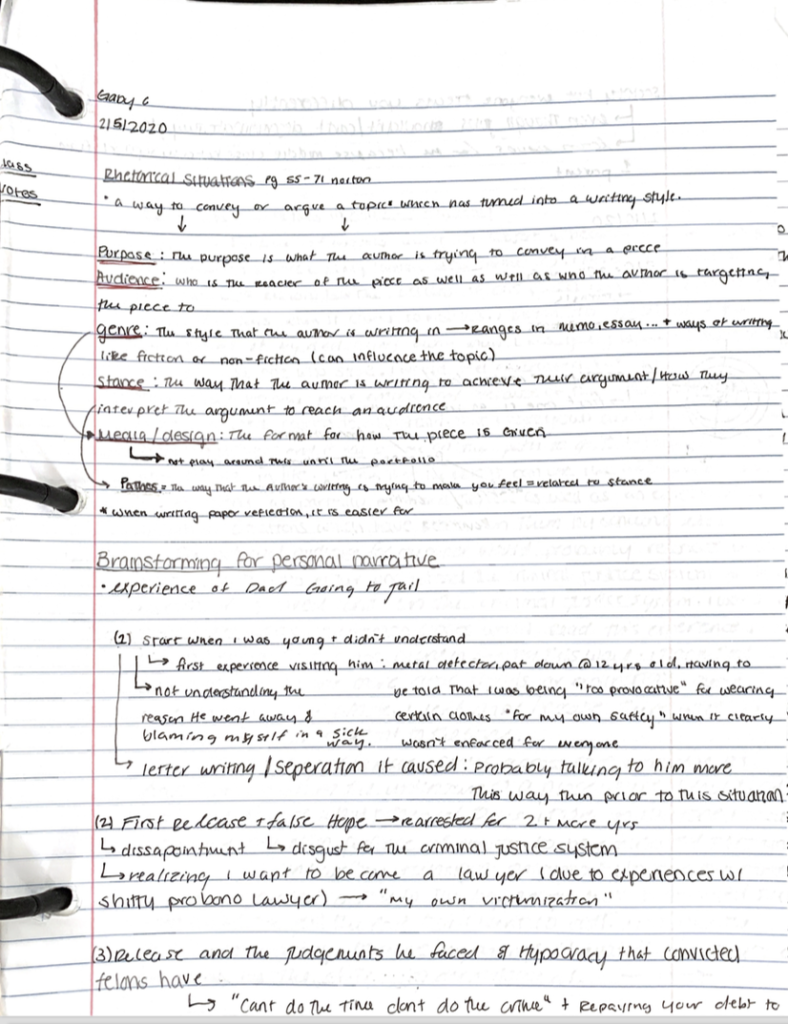 Gaby G
2/5/2020
Class
Notes
Rhetorical Situations pg 55-71 norton
• a way to convey or argue a topic which has turned into a writing style.
↓ ↓
Purpose: The purpose is what the author is trying to convey in a piece
Audience: who is the reader of the piece as well as well as who the author is targeting
the piece to
genre: The style that the author is writing in → ranges in memo, essay... + ways of writing
like fiction or non-fiction (can influence the topic)
Stance: The way that the author is writing to achieve their argument/How they
interpret the argument to reach an audience
Media/design: The format for how the piece is given
↳ not play around this until the portfolio
→ Pathos = the way that the Author's writing is trying to make you feel = related to stance
* when writing paper reflection, it is easier for
Brainstorming for personal narrative
• experience of Dad Going to Jail
(1) start when i was young + didn't understand
↳ first experience visiting him: metal detector, pat down @ 12 yrs old, Having to
be told that i was being "too provocative" for wearing
certain clothes "for my own saftey" when it clearly
wasn't enforced for everyone
↳ not understanding the
reason He went away &
blaming myself in a sick
way.
↳ letter writing / seperation it caused: Probably talking to him more
This way then prior to this situation
(2) First Release + false Hope → rearrested for 2+ more yrs
↳ dissapointment ↳ disgust for the criminal justice system
↳ realizing i want to become a lawyer (due to experiences w/
shitty probono lawyer) → "my own victimization"
(3) Release and the judgements he faced & Hypocracy that convicted
felons have
↳ "Cant do the time dont do the crime" + Repaying your debt to